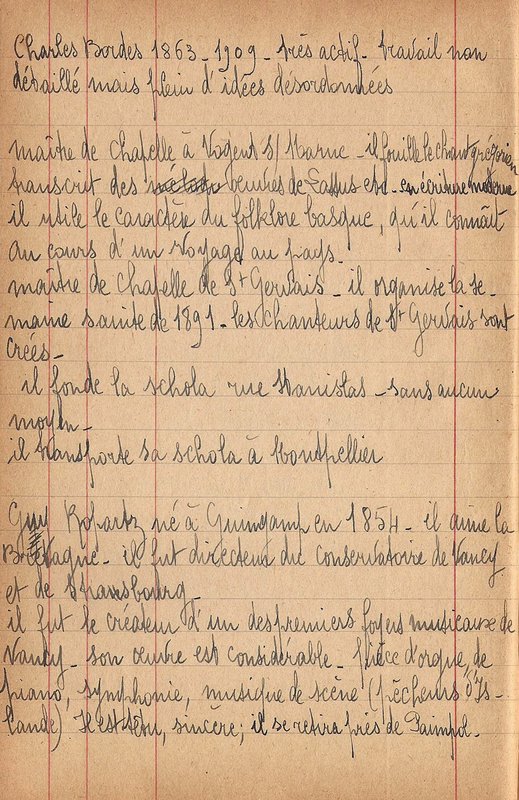 Charles Bordes 1863 - 1909 - très actif - travail non
détaillé mais plein d'idées désordonnées
maître de chapelle à Nogent s/ Marne - il fouille le chant grégorien
transcrit des oeuvres de Lassus etc - en écriture moderne
il utile le caractère du folklore basque, qu'il connaît
au cours d'un voyage au pays -
maître de chapelle de St Gervais - il organise la se-
maine sainte de 1891 - les chanteurs de St Gervais sont
créés -
il fonde la schola rue Stanislas - sans aucun
moyen -
il transporte sa schola à Montpellier
Guy Ropartz né à Guingamp en 1854 - il aime la
Bretagne - il fut directeur du conservatoire de Nancy
et de Strasbourg -
il fut le créateur d'un des premiers foyers musicaux de
Nancy - son œuvre est considérable - pièce d'orgue, de
piano, symphonie, musique de scène (pêcheurs d'Is-
lande) Il est têtu, sincère; il se retira près de Paimpol -